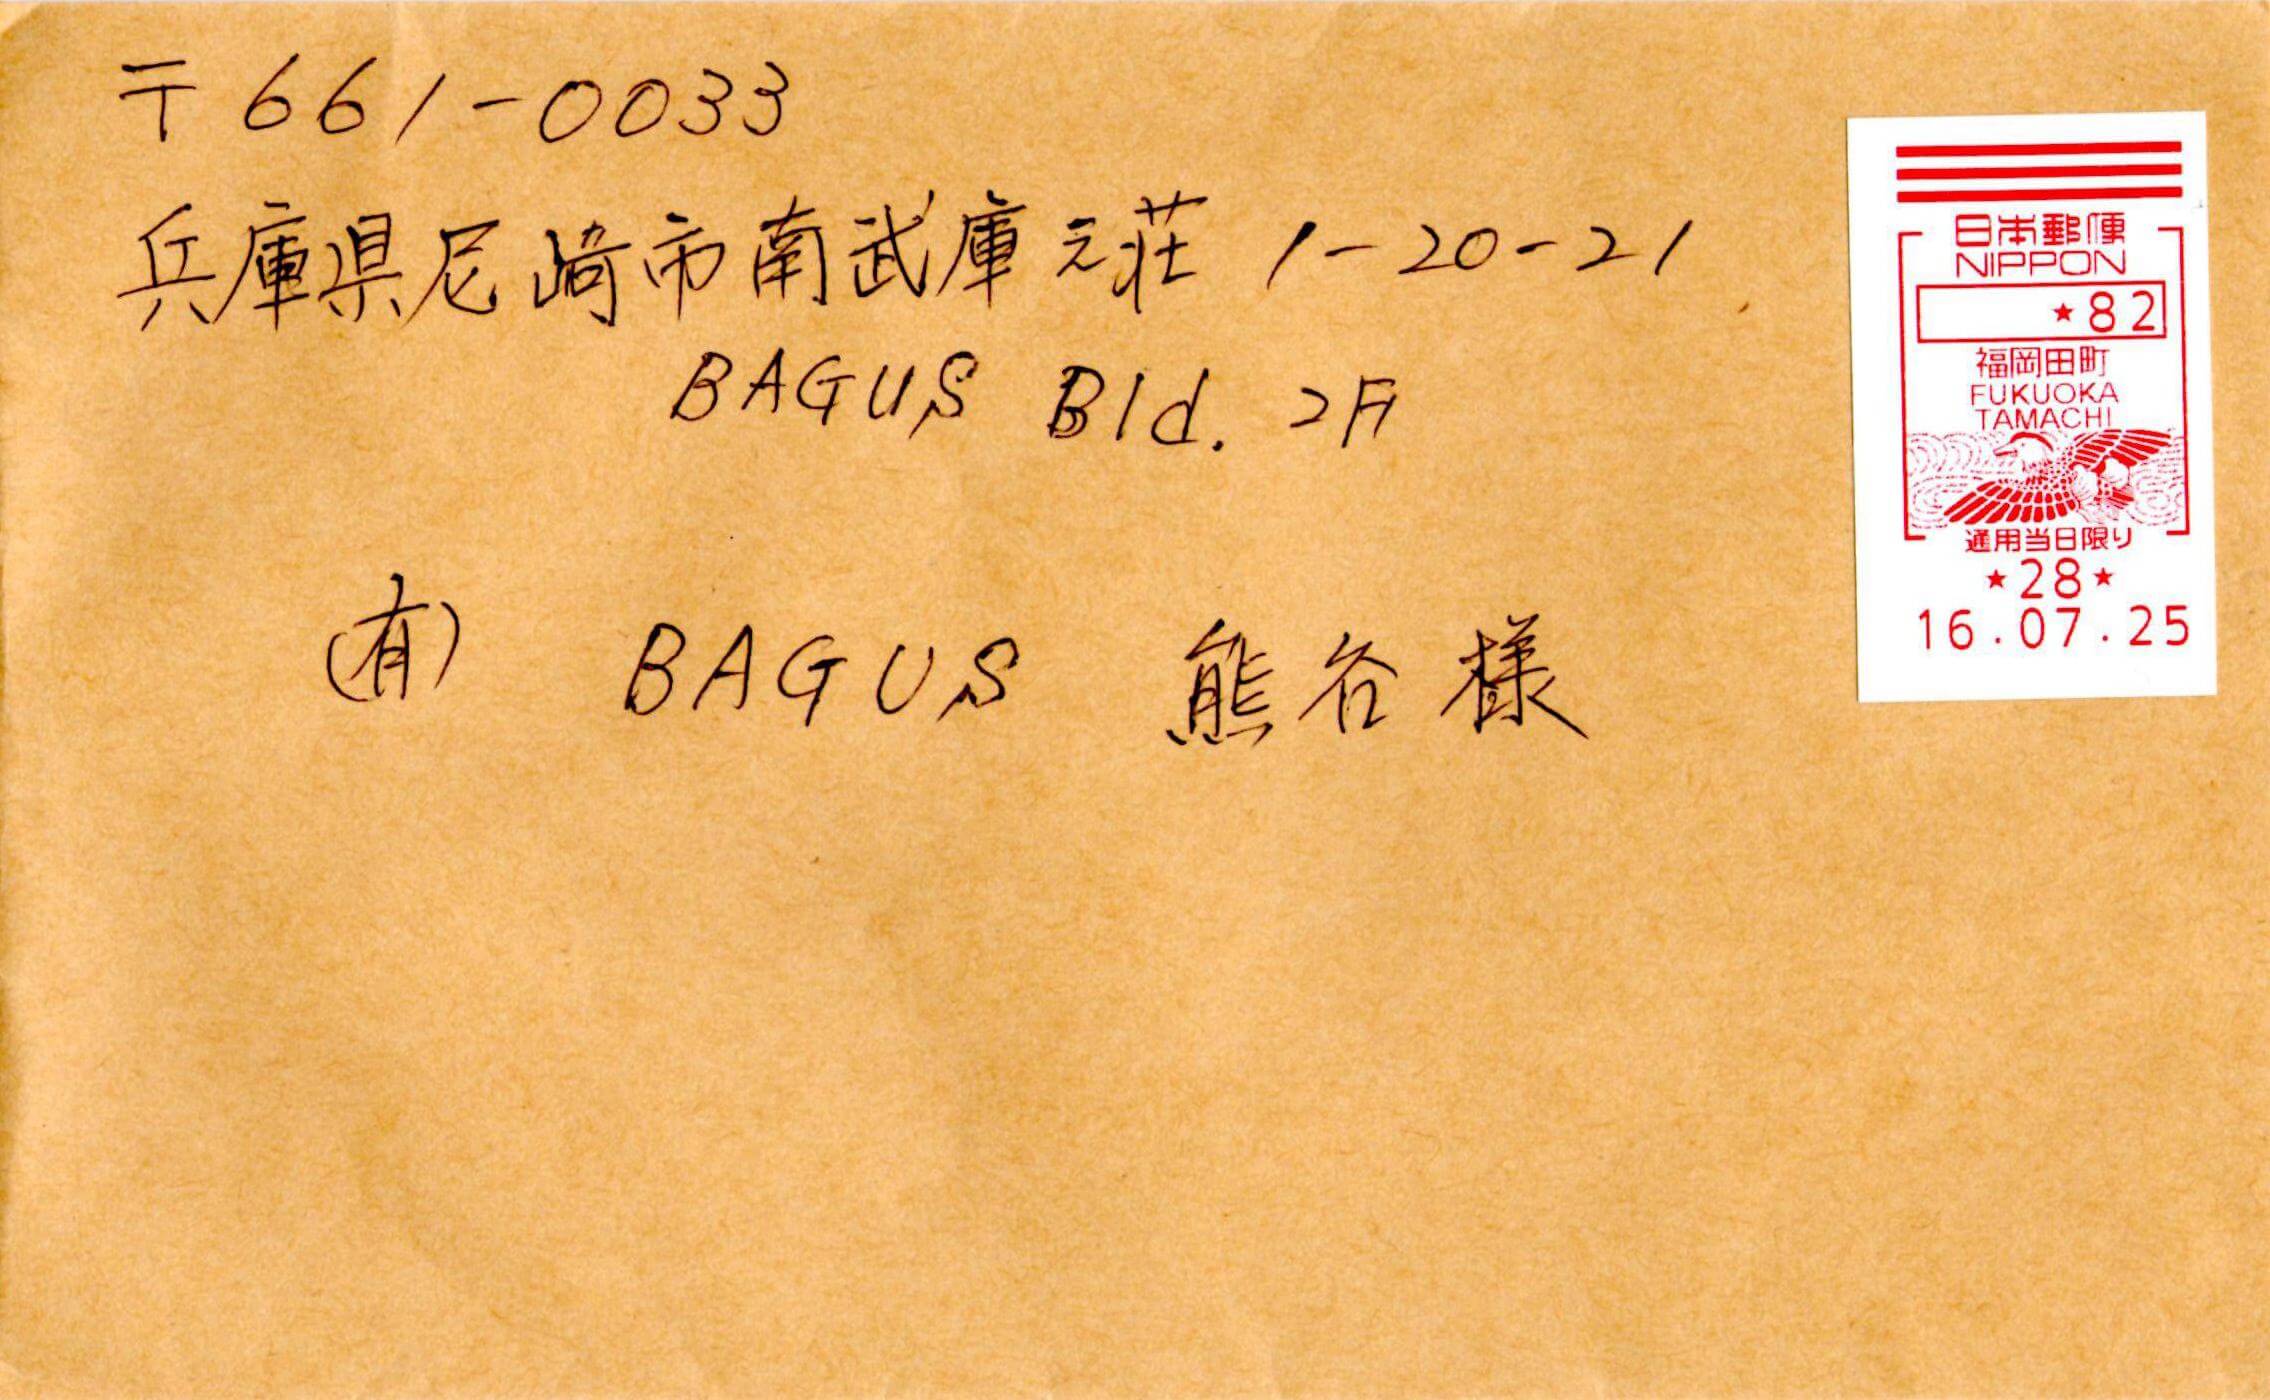 〒661-0033
兵庫県尼崎市南武庫之荘 1-20-21
BAGUS Bld. 2F
(有) BAGUS 熊谷様
日本郵便
NIPPON
★82
福岡田町
FUKUOKA
TAMACHI
通用当日限り
★28★
16.07.25